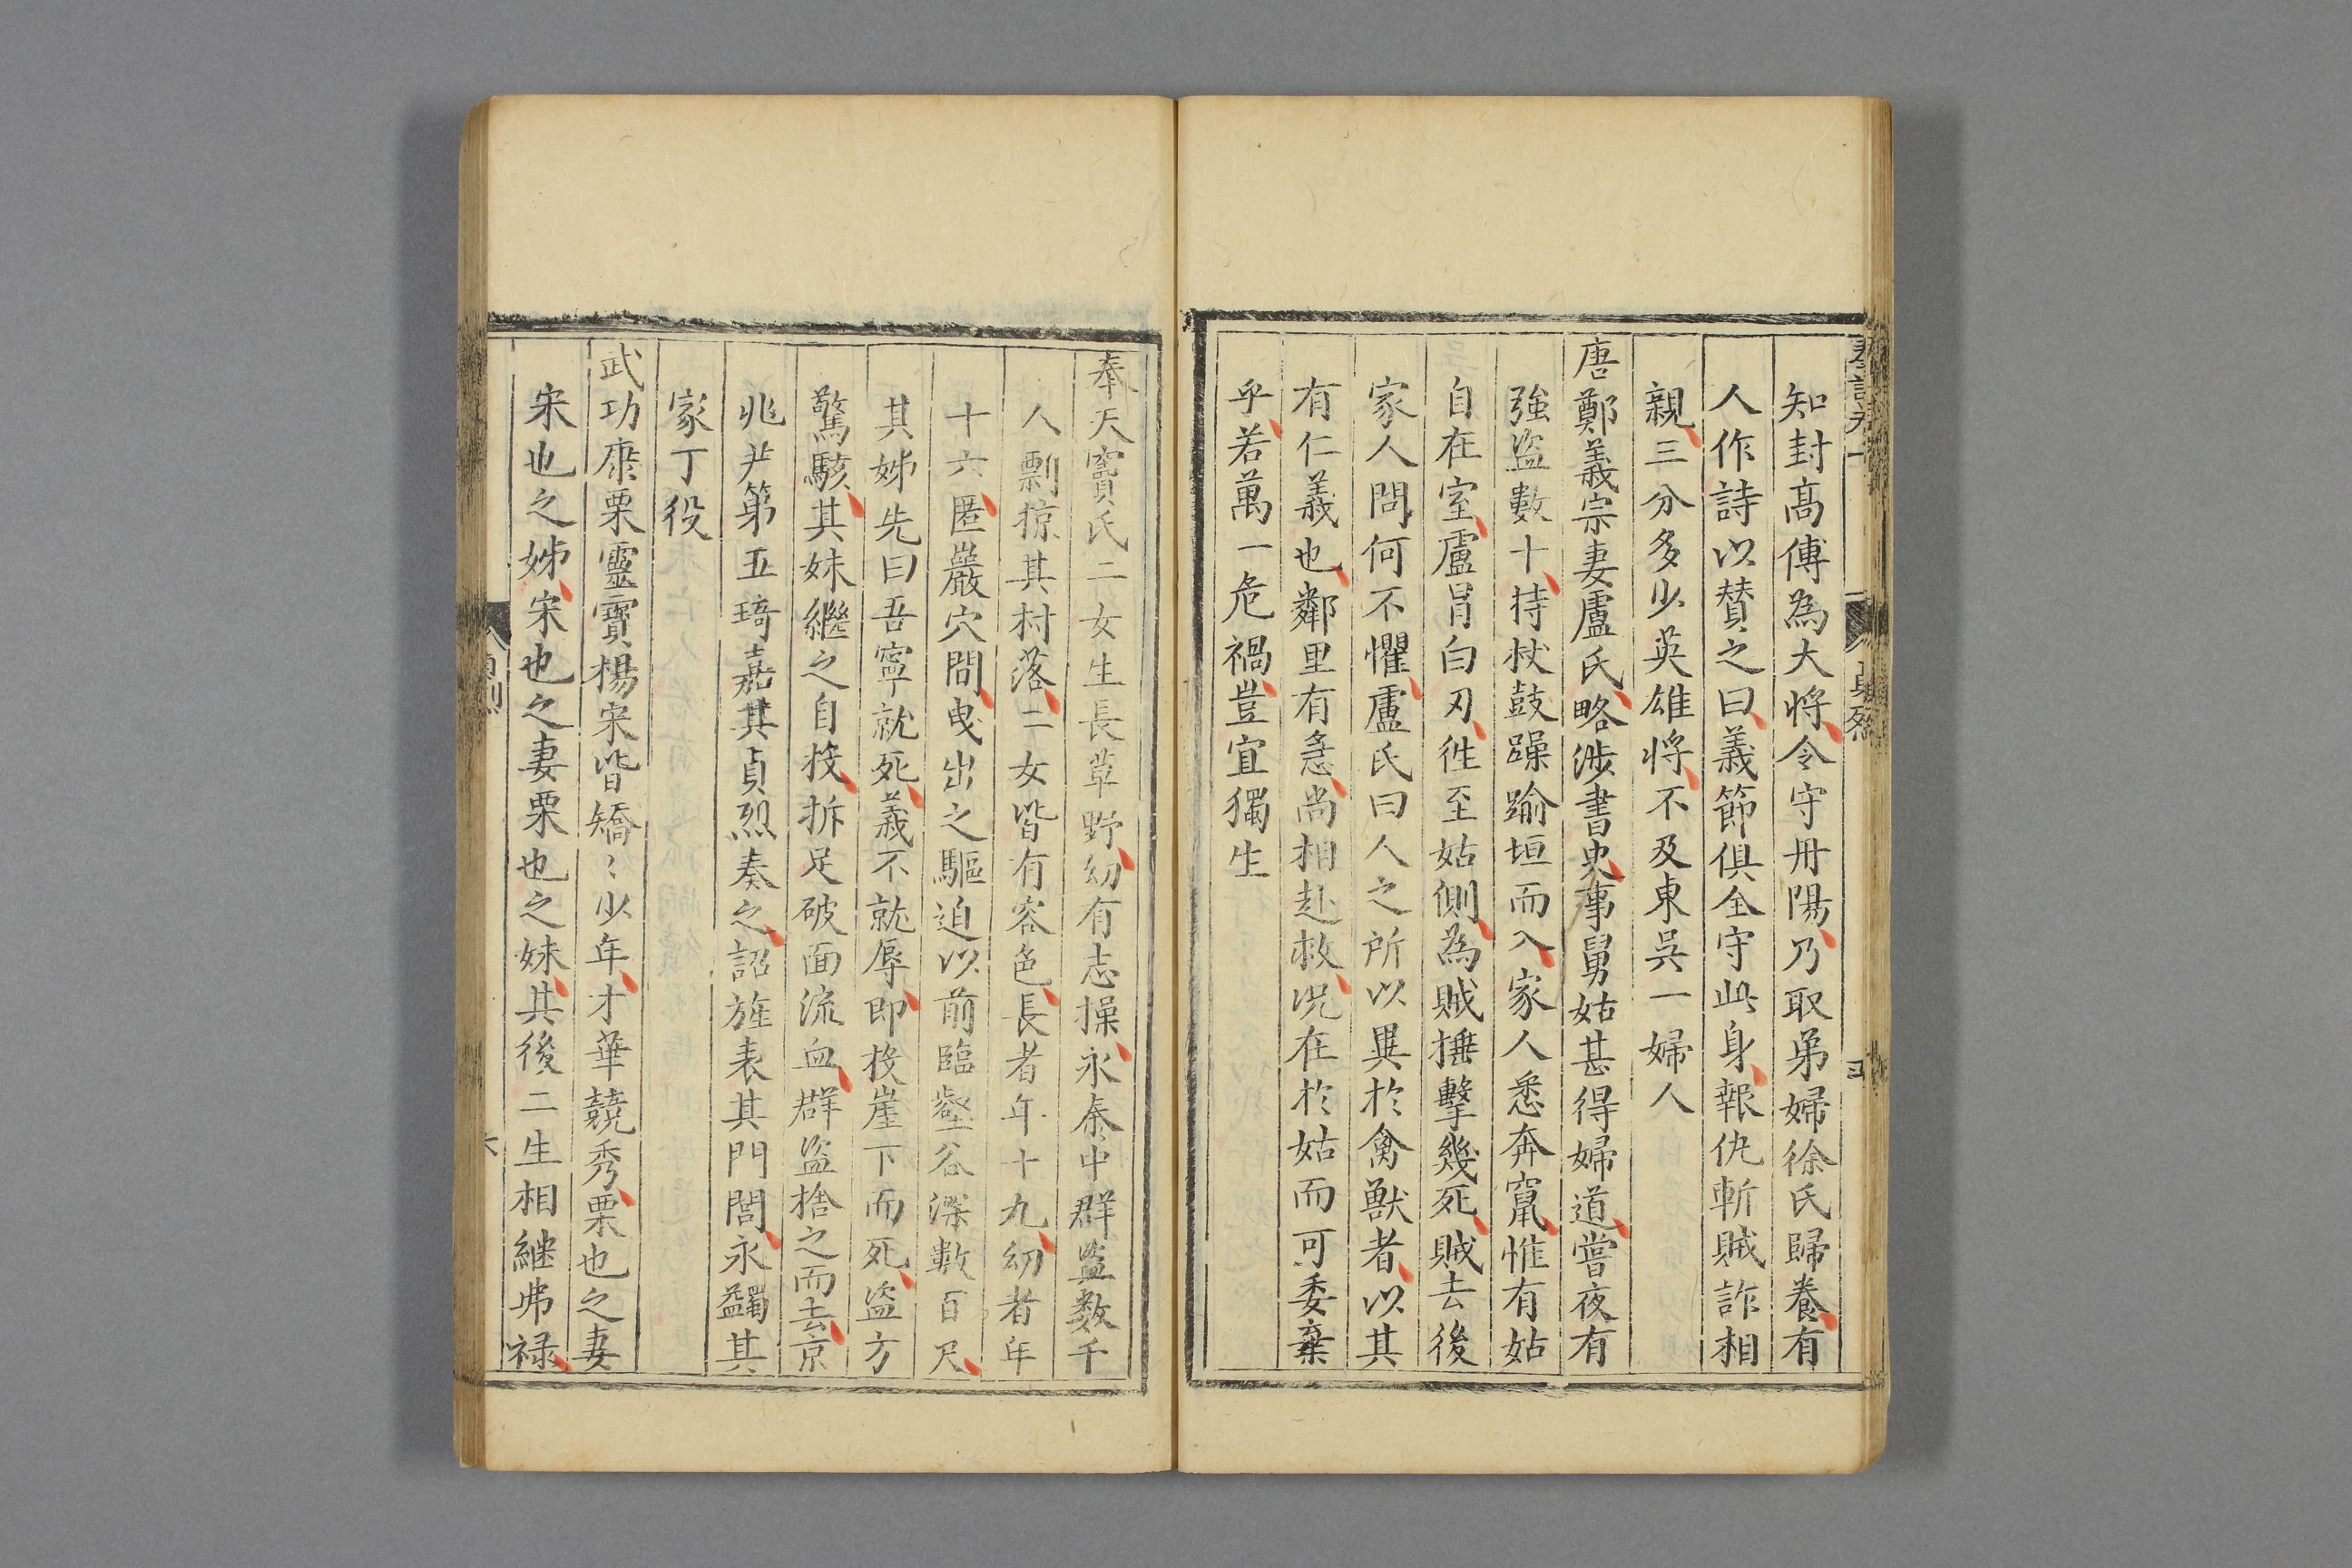 知封高傅為大將令守丹陽乃取弟婦徐氏歸養有
人作詩以賛之曰義節俱全守此身報仇斬賊詐相
親三分多少英雄將不及東吳一婦人
唐鄭義宗妻盧氏略涉書史事舅姑甚得婦道嘗夜有
強盜數十持杖鼓躁踰垣而入家人悉奔竄惟有姑
自在室盧冒白刃徃至姑側為賊捶擊幾死賊去後
家人問何不懼盧氏曰人之所以異於禽獸者以其
有仁義也鄰里有急尚相赴救况在於姑而可委棄
乎若萬一危禍豈宜獨生
奉天竇氏二女生長草野幼有志操永泰中群盜数千
人剽掠其村落二女皆有容色長者年十九幼者年
十六匿巖穴間曵出之驅迫以前臨壑谷深數百尺
其姊先曰吾寧就死義不就辱即投崖下而死盜方
驚駭其妹繼之自投拆足破面流血群盜捨之而去京
兆尹第五琦嘉其貞烈奏之詔旌表其門閭永蠲其
家丁役
武功康栗靈寳楊宋皆矯〻少年才華競秀栗也之妻
宋也之姊宋也之妻栗也之妹其後二生相継弗禄
貞烈
六